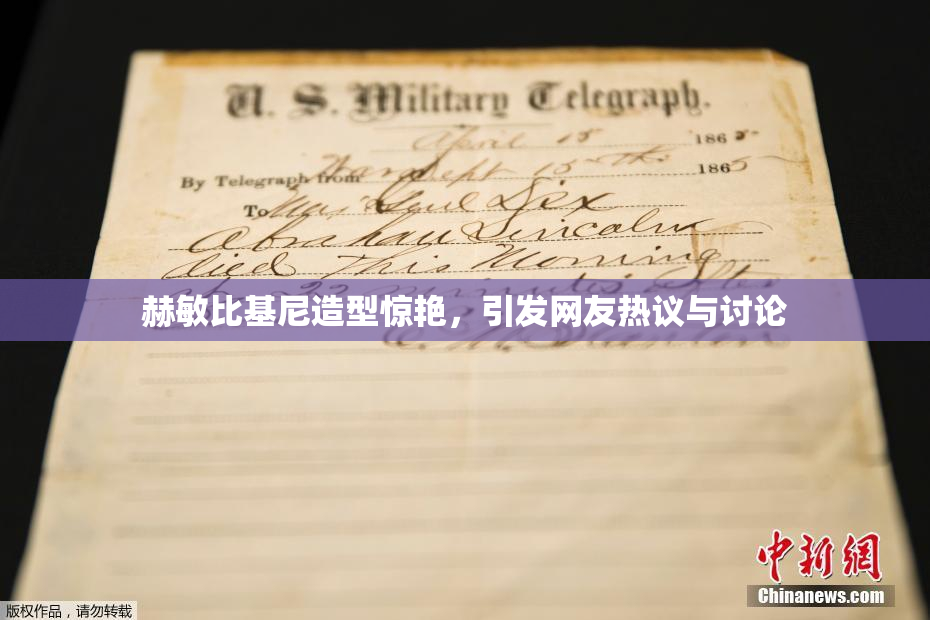 U. S. Military Telegraph.
April 15 1865
By Telegraph from War Dept 15th 1865
To Maj Genl Dix
Abraham Lincoln
died This Morning
at 22 minutes after
赫敏比基尼造型惊艳，引发网友热议与讨论
E. M. Stanton
中新网
Chinanews.com
版权作品，请勿转载